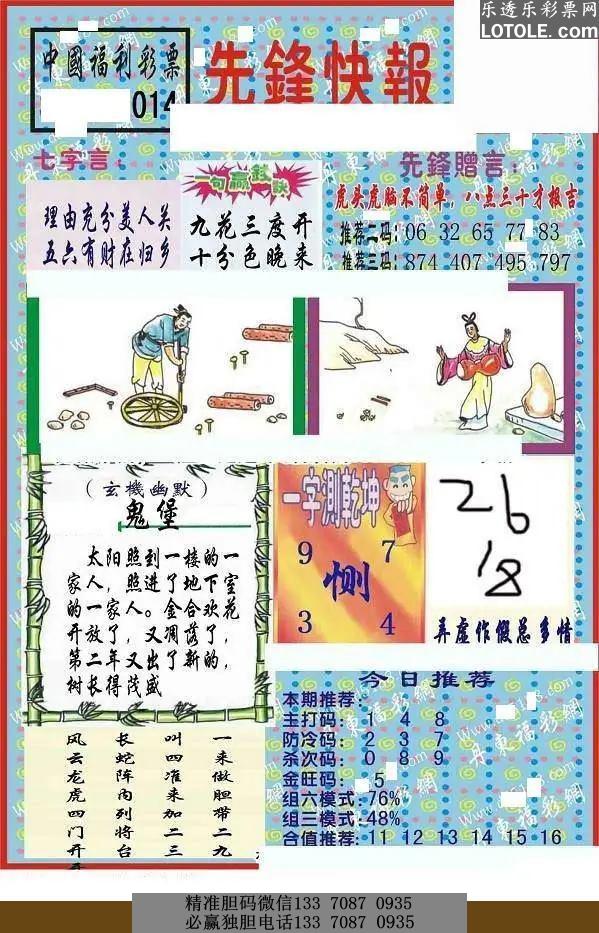 乐透乐彩票网
LOTOLE.COM
中國福利彩票
014
先鋒快報
七字言：
理由充分美人关
五六有财在归乡
一句赢錢訣
九花三度开
十分色晚来
先鋒贈言：
虎头虎脑不简单，八五三十才报吉
推荐二码：06 32 65 77 83
推荐三码：874 407 495 797
（玄機幽默）
鬼堡
太阳照到一楼的一
家人，照进了地下室
的一家人。金合欢花
开放了，又凋落了，
第二年又出了新的，
树长得茂盛
一字测乾坤
9 7
恻
3 4
26
18
弄虚作假总多情
今日推荐
本期推荐：
主打码：1 4 8
防冷码：2 3 7
杀次码：0 8 9
金旺码：5
组六模式：76%
组三模式：48%
合值推荐：11 12 13 14 15 16
风云龙虎四门开
长蛇阵内列将台
叫四准来加二三
一来做胆带二九
丹東福彩網
精准胆码微信133 7087 0935
必赢独胆电话133 7087 0935